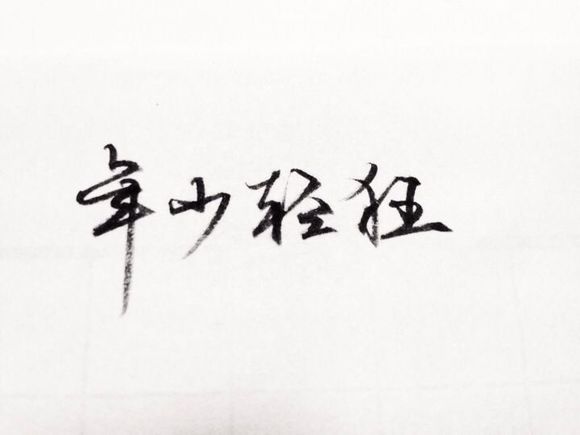 年少轻狂